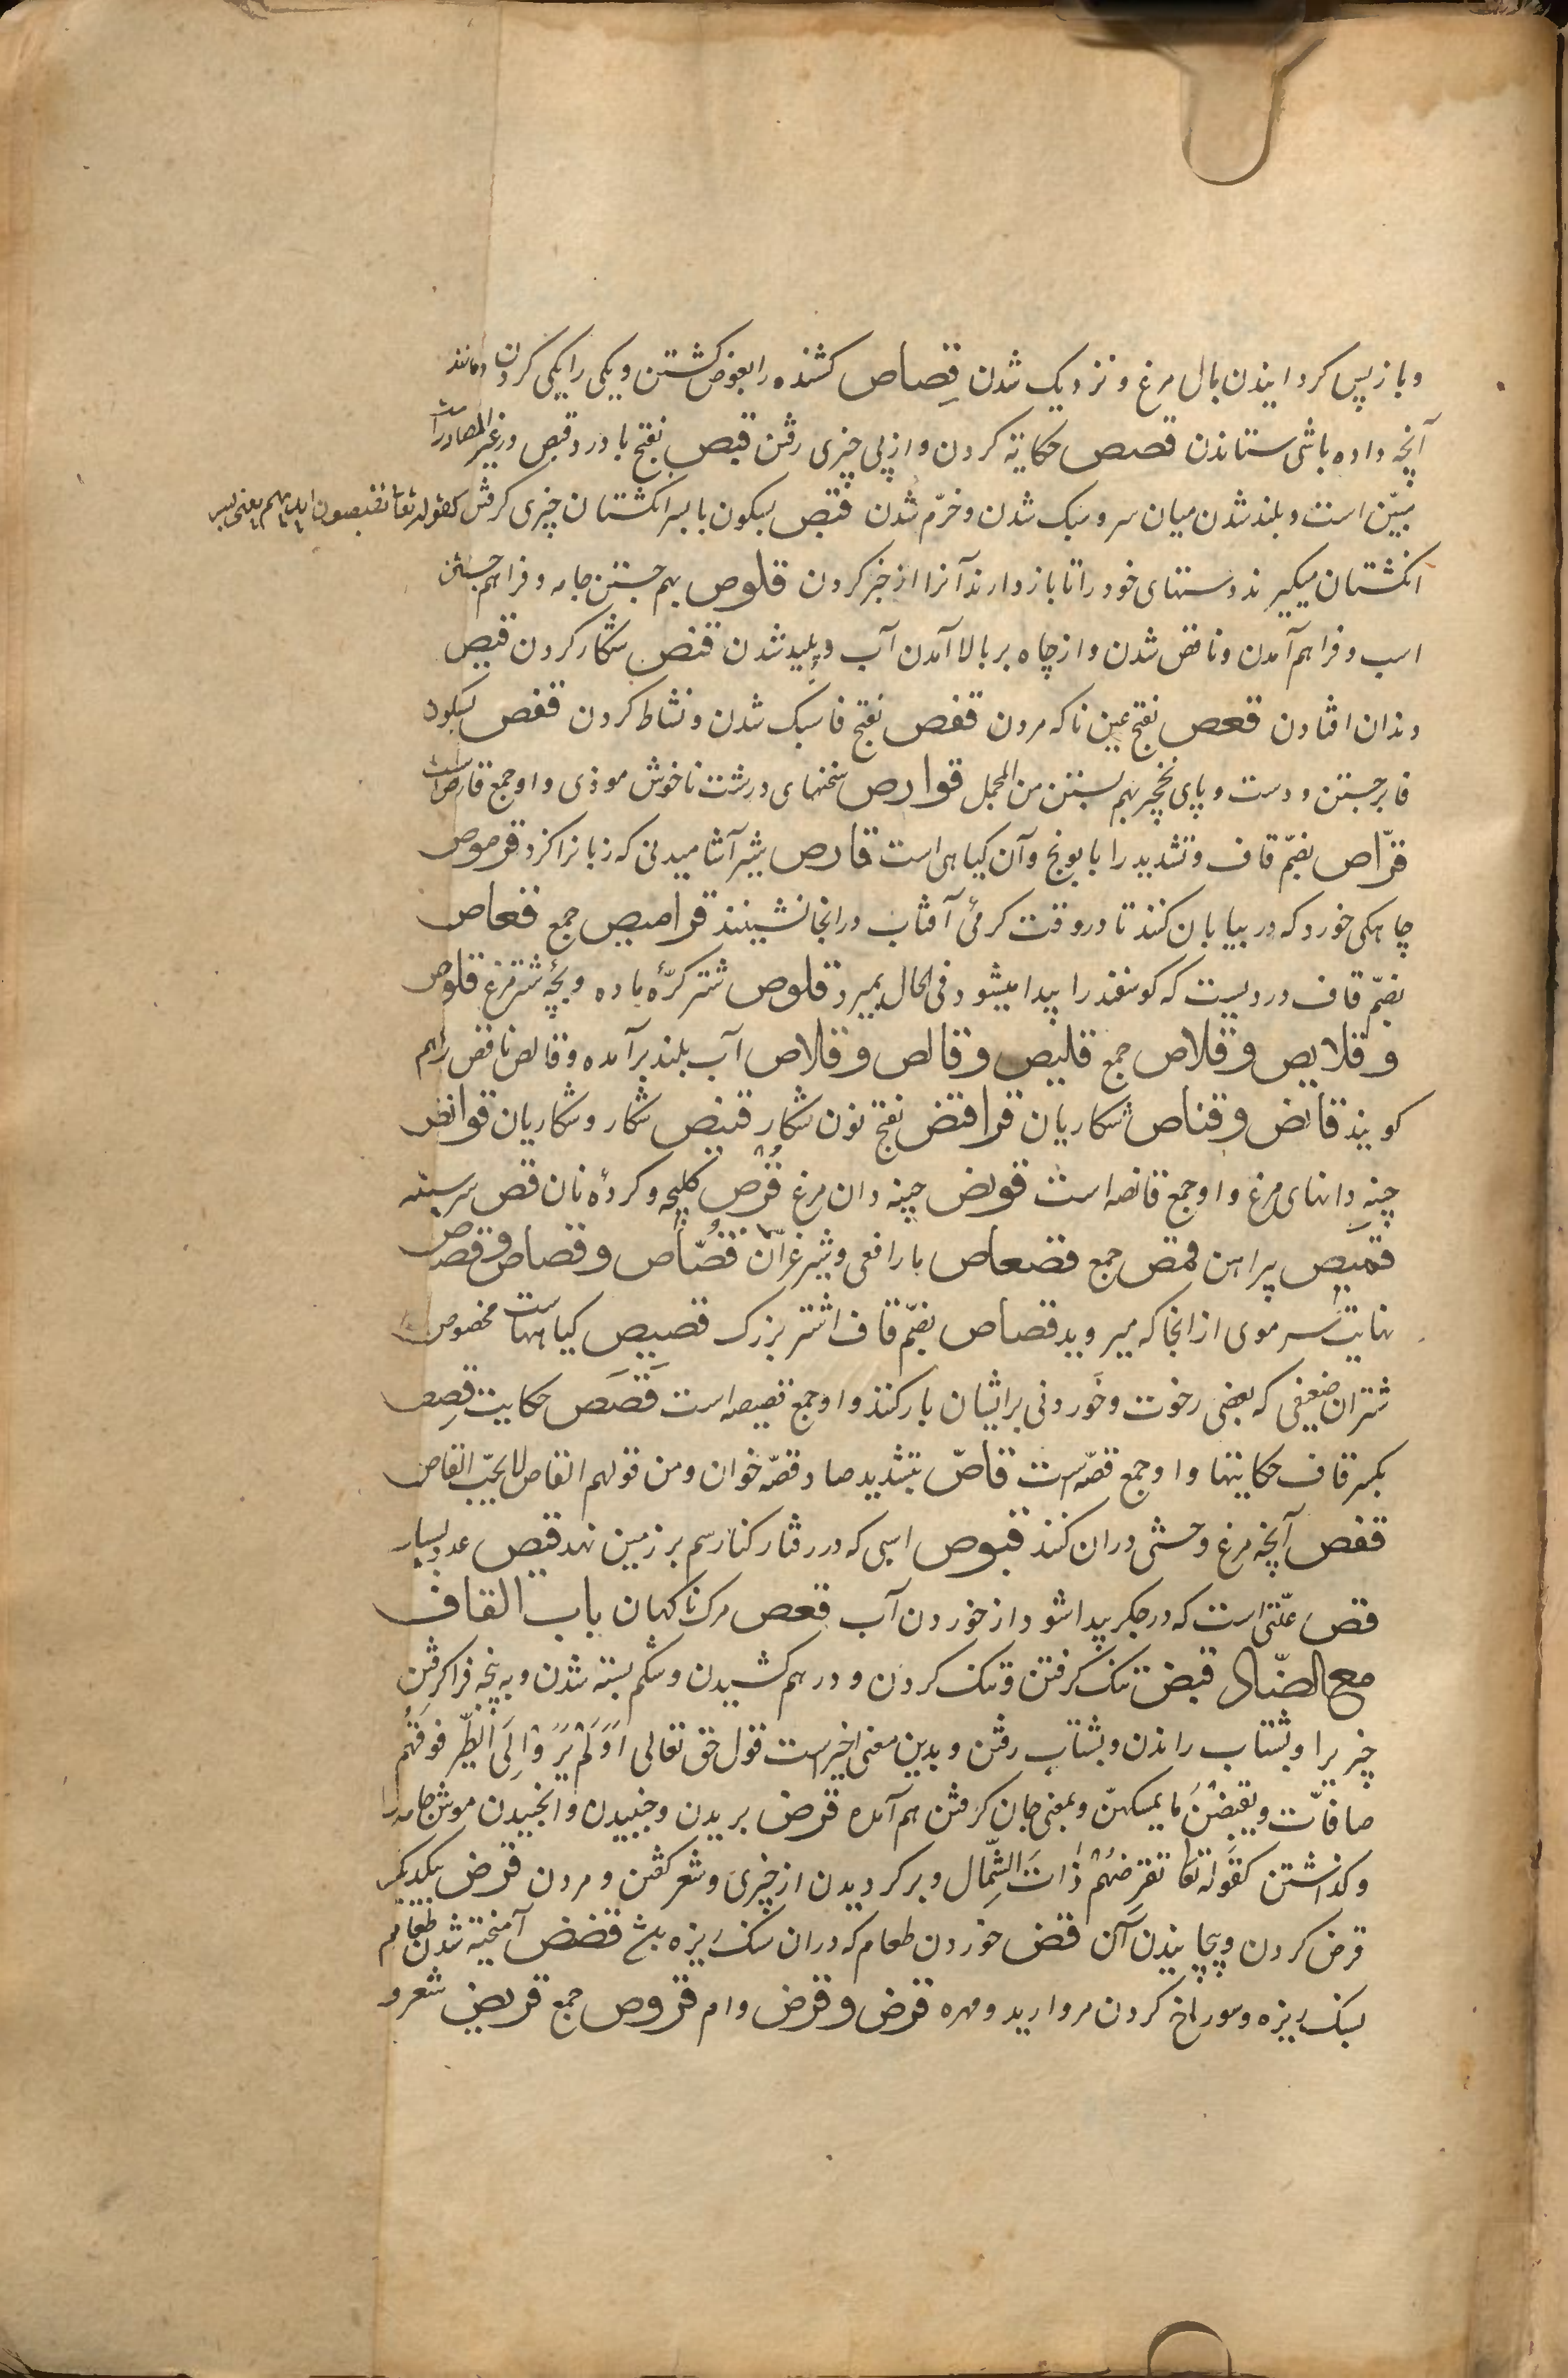 و باز پس کردانیدن بال مرغ و نزدیک شدن قِصاص کشنده را بعوض کشتن و یکی را یکی کردن و مانند
آنچه داده باشی ستاندن قصص حکایة کردن و از پی چیزی رفتن قبص بفتح با درد قبص و رغیر المصادر
مبیّن است و بلند شدن میان سر و سبک شدن و خرّم شدن قبص بسکون با بسر انکشتان چیزی کرفتن کقوله تعا تقبصون ایدیهم یعنی بسر
انکشتان میکیرند دستهای خود را تا باز دارند آنرا از خیر کردن قلوص بهم جستن جامه و فراهم جستن
اسب و فراهم آمدن و ناقص شدن و از چاه بر بالا آمدن آب و پلید شدن قنص شکار کردن قیص
دندان افتادن قعص بفتح عین ناکه مردن قفص بفتح فا سبک شدن و نشاط کردن قفص بسکون
فا برجستن و دست و پای نخچیر بهم بستن من المجمل قوارص سخنهای درشت ناخوش موذی و او جمع قارص است
قرّاص بضمّ قاف و تشدید را بابونج و آن کیاهی است قارص شیر آشامیدنی که زبانرا کزد قرموص
چاهکی خورد که در بیابان کنند تا در وقت کرمئ آفتاب در انجا نشینند قرامیص جمع قعاص
بضمّ قاف دردیست که کوسفند را پیدا میشود فی الحال بمیرد قلوص شتر کرّه ماده و بچّه شتر مرغ قلوص
و قلایص و قلاص جمع قلیص و قالص و قلاص آب بلند بر آمده و قالص ناقص را هم
کویند قانص و قناص شکاریان قرا قنص بفتح نون شکار قنیص شکار و شکاریان قوانص
چینه دانهای مرغ و او جمع قانصه است قونص چینه دان مرغ قُرص کلیچه و کردهٔ نان قص سر سینه
قمیص پیراهن قمص جمع قضعاص مار افعی و شیر غرّان قُصّاص و قصاص و قصاص
نهایت سر موی از انجا که میروید قصاص بضمّ قاف اشتر بزرک قصیص کیاههاست مخصوص
شتران ضعیفی که بعضی رخوت و خَوردنی بر ایشان بار کنند و او جمع قصیصه است قَصَص حکایت قِصص
بکسر قاف حکایتها و او جمع قصّه است قاصّ بتشدید صاد قصّه خوان و من قولهم القاص لا یحبّ القاص
قفص آنچه مرغ وحشی در ان کنند قبوص اسبی که در رفتار کنار سم بر زمین نهد قبص عدد بسیار
قص علّتی است که در جکر پیدا شود از خوردن آب قعص مرک ناکهان باب القاف
مع الضّاد قبض تنک کرفتن و تنک کردن و در هم کشیدن و شکم بسته شدن و به پنجه فرا کرفتن
چیزیرا و بشتاب راندن و بشتاب رفتن و بدین معنی اخیر است قول حق تعالی اَوَلَمْ یَرَوْا اِلَی الطَّیر فوقَهُم
صافّات و یقبضْنَ ما یمسکهنّ و بمعنی جان کرفتن هم آمده قرض بریدن و جنبیدن و انجیدن موش جامه را
و کذاشتن کقوله تعا تقرِضهُمْ ذاتَ الشِّمال و بر کردیدن از چیزی و شعر کفتن و مردن قرض بیکدیکر
قرض کردن و پیچانیدن آن قض خوردن طعام که در ان سنک ریزه باشد قضض آمیخته شدن طعام
بسنک ریزه و سوراخ کردن مروارید و مهره قرض و قرض وام قروض جمع قریض شعر و